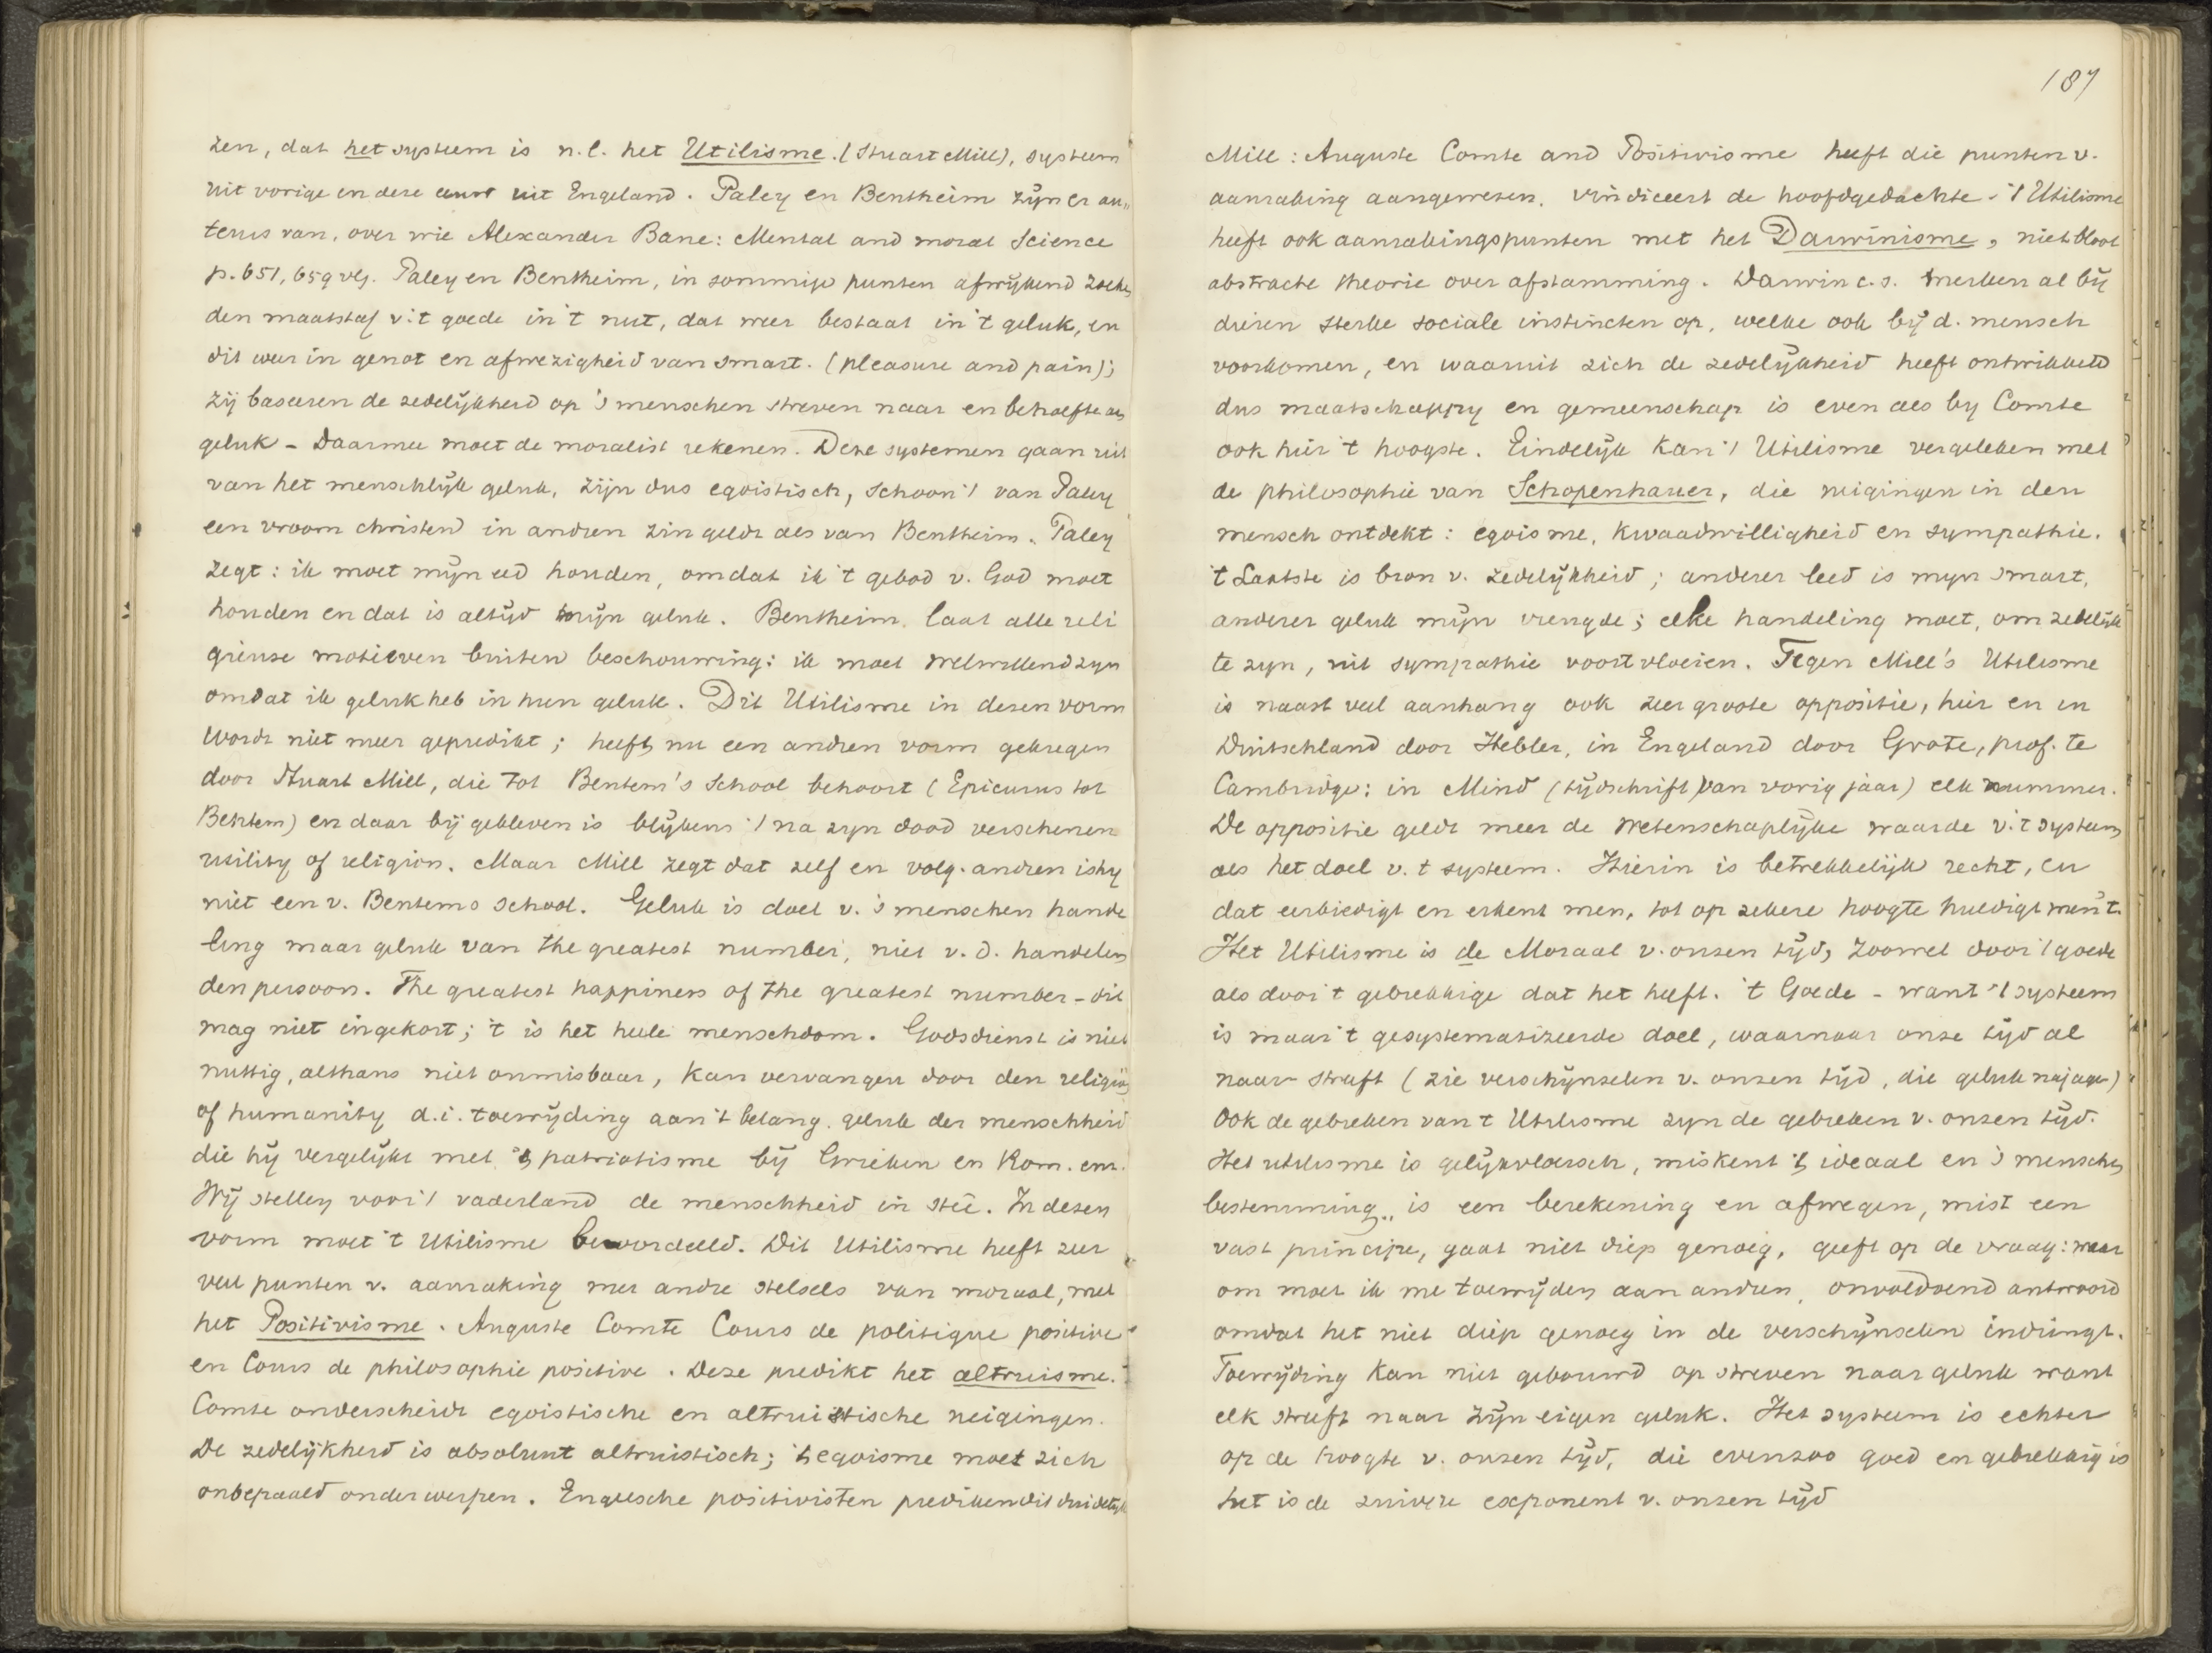 zen, dat het systeem is n.l. het Utilisme. (Stuart Mill), systeem
uit vorige en deze eeuw uit Engeland. Paley en Bentheim zijn er au„
teurs van, over wie Alexander Bane: Mental and moral Science
p. 651, 659 vlg. Paley en Bentheim, in sommige punten afwijkend zoeken
den maatstaf v. 't goede in 't nut, dat weer bestaat in 't geluk, en
dit weer in genot en afwezigheid van smart. (pleasure and pain);
zij baseeren de zedelijkheid op 's menschen streven naar en behoefte aan
geluk - Daarmee moet de moralist rekenen. Deze systemen gaan uit
van het menschlijk geluk, zijn dus egoistisch, schoon 't van Paley
een vroom christen in andren zin geldt als van Bentheim. Paley
zegt: ik moet mijn eed houden, omdat ik 't gebod v. God moet
houden en dat is altijd mijn geluk. Bentheim laat alle reli
gieuse motieven buiten beschouwing: ik moet welwillend zyn
omdat ik geluk heb in hun geluk. Dit Utilisme in dezen vorm
wordt niet meer gepredikt; heeft nu een andren vorm gekregen
door Stuart Mill, die tot Bentem's School behoort (Epicurus tot
Bentem) en daar bij gebleven is blijkens 't na zyn dood verschenen
utility of religion. Maar Mill zegt dat zelf en volg. andren is hy
niet een v. Bentems school. Geluk is doel v. 's menschen hande
ling maar geluk van the greatest number, niet v. d. handelen
den persoon. The greatest happiness of the greatest number - dit
mag niet ingekort; 't is het heele menschdom. Godsdienst is niet
nuttig, althans niet onmisbaar, kan vervangen door den religion
of humanity d.i. toewijding aan 't belang. geluk der menschheid
die hij vergelijkt met 't patriotisme bij Grieken en Rom. enz.
Wij stellen voor 't vaderland de menschheid in steê. In dezen
vorm moet 't Utilisme beoordeeld. Dit Utilisme heeft zeer
veel punten v. aanraking met andre stelsels van moraal, met
het Positivisme. Auguste Comte Cours de politique positive
en Cours de philosophie positive. Deze predikt het altruisme.
Comte onderscheidt egoistische en altruistische neigingen.
De zedelijkheid is absoluut altruistisch; 't egoisme moet zich
onbepaald onderwerpen. Engelsche positivisten prediken dit duidelijk
187
Mill: Auguste Comte and Positivisme heeft die punten v.
aanraking aangewezen, vindiceert de hoofdgedachte - 't Utilisme
heeft ook aanrakingspunten met het Darwinisme, niet bloot
abstracte theorie over afstamming. Darwin c.s. merken al bij
dieren sterke sociale instincten op, welke ook bij d. mensch
voorkomen, en waaruit zich de zedelijkheid heeft ontwikkeld
dus maatschappy en gemeenschap is even als by Comte
ook hier 't hoogste. Eindelijk kan 't Utilisme vergeleken met
de philosophie van Schopenhauer, die neigingen in den
mensch ontdekt: egoisme, kwaadwilligheid en sympathie.
't Laatste is bron v. zedelijkheid; anderer leed is myn smart,
anderer geluk mijn vreugde; elke handeling moet, om zedelijk
te zyn, uit sympathie voortvloeien. Tegen Mill's Utilisme
is naast veel aanhang ook zeer groote oppositie, hier en in
Duitschland door Hebler, in Engeland door Grote, prof. te
Cambridge: in Mind (tijdschrift) van vorig jaar) elk nummer.
De oppositie geldt meer de wetenschaplijke waarde v. 't systeem
als het doel v. t systeem. Hierin is betrekkelijk recht, en
dat eerbiedigt en erkent men, tot op zekere hoogte huldigt men 't.
Het Utilisme is de Moraal v. onzen tijd, zoowel door 't goede
als door t gebrekkige dat het heeft. 't Goede - want 't systeem
is maar 't gesystematizeerde doel, waarnaar onze tijd al
naar streeft (zie verschynselen v. onzen tijd, die geluk najagen)
Ook de gebreken van t Utilisme zyn de gebreken v. onzen tijd.
Het utilisme is gelijkvloersch, miskent 't ideaal en 's menschen
bestemming„ is een berekening en afwegen, mist een
vast principe, gaat niet diep genoeg, geeft op de vraag: waar
om moet ik me toewijden aan andren, onvoldoend antwoord
omdat het niet diep genoeg in de verschijnselen indringt.
Toewijding kan niet gebouwd op streven naar geluk want
elk streeft naar zijn eigen geluk. Het systeem is echter
op de hoogte v. onzen tijd, die evenzoo goed en gebrekkig is
het is de zuivere exponent v. onzen tijd